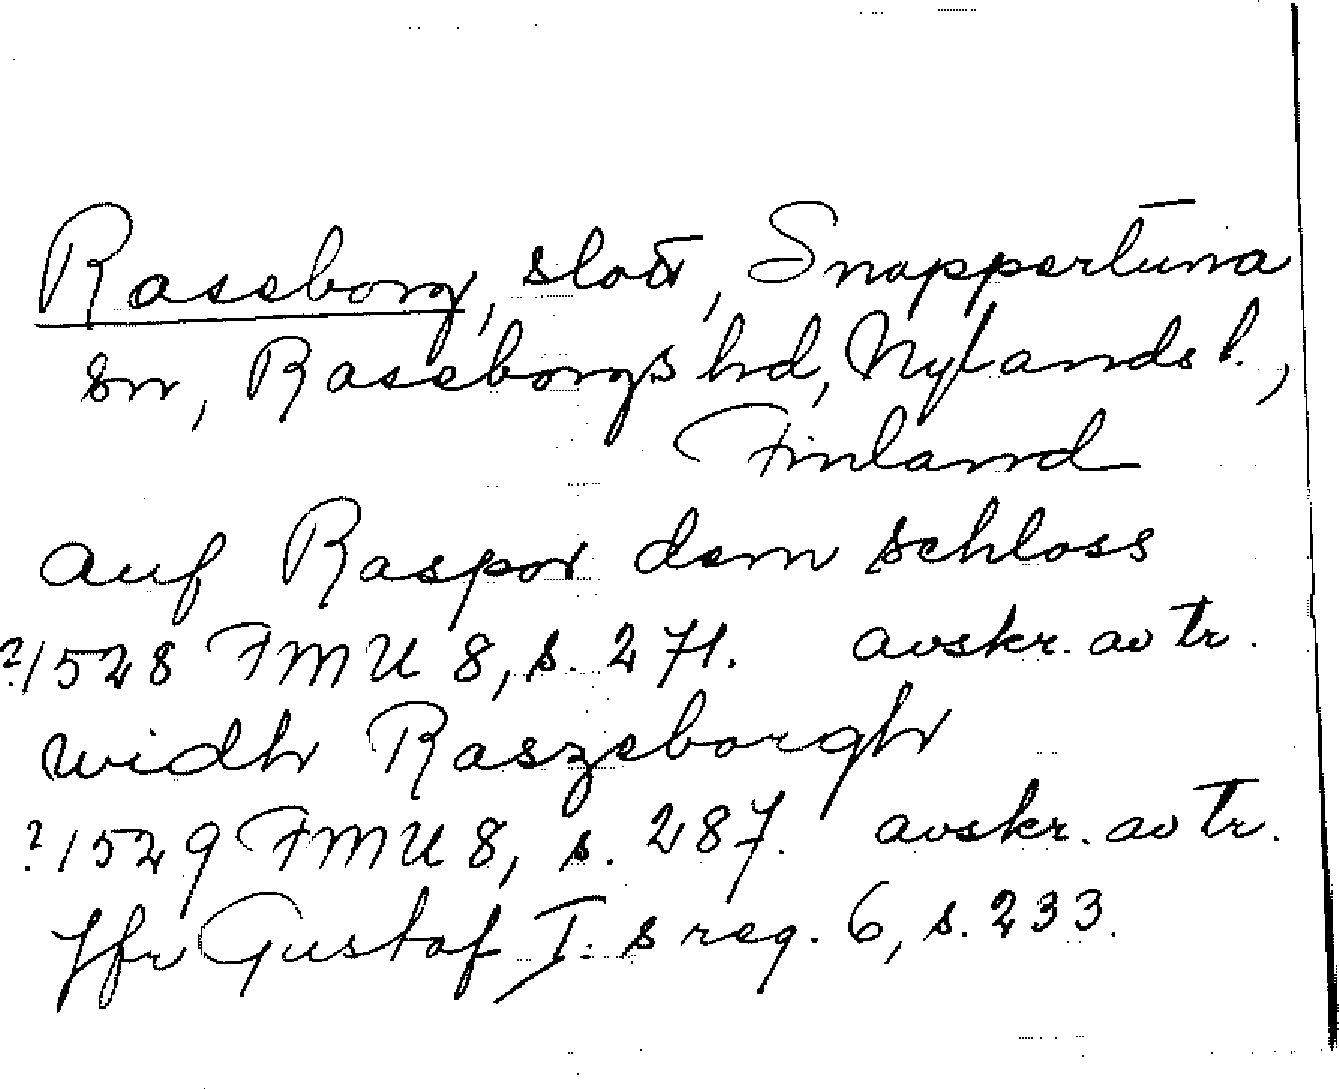 Raseborg, slott, Snappertuna
sn, Raseborgs hd, Nylands l.,
Finland
auf Raspor dem schloss
?1528 FMU 8, s. 271. avskr. av tr.
widh Raszeborgh
?1529 FMU 8, s. 287. avskr. av tr.
Jfr Gustaf I:s reg. 6, s. 233.